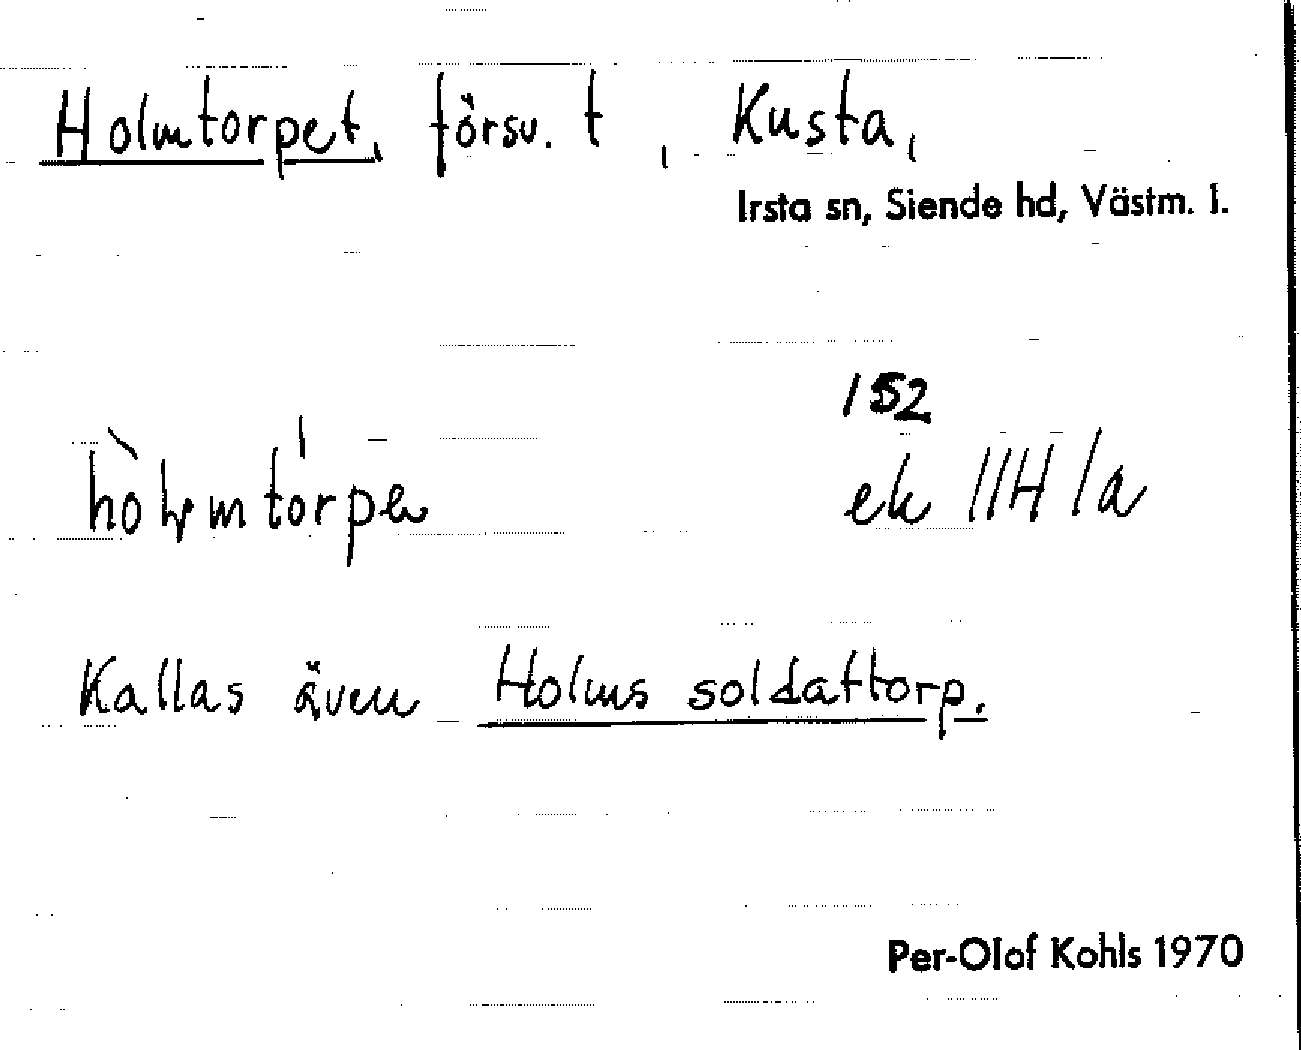 Holmtorpet, försv. t, Kusta,
Irsta sn, Siende hd, Västm. l.
152
ek 11H 1a
Kallas även Holms soldattorp.
Per-Olof Kohls 1970